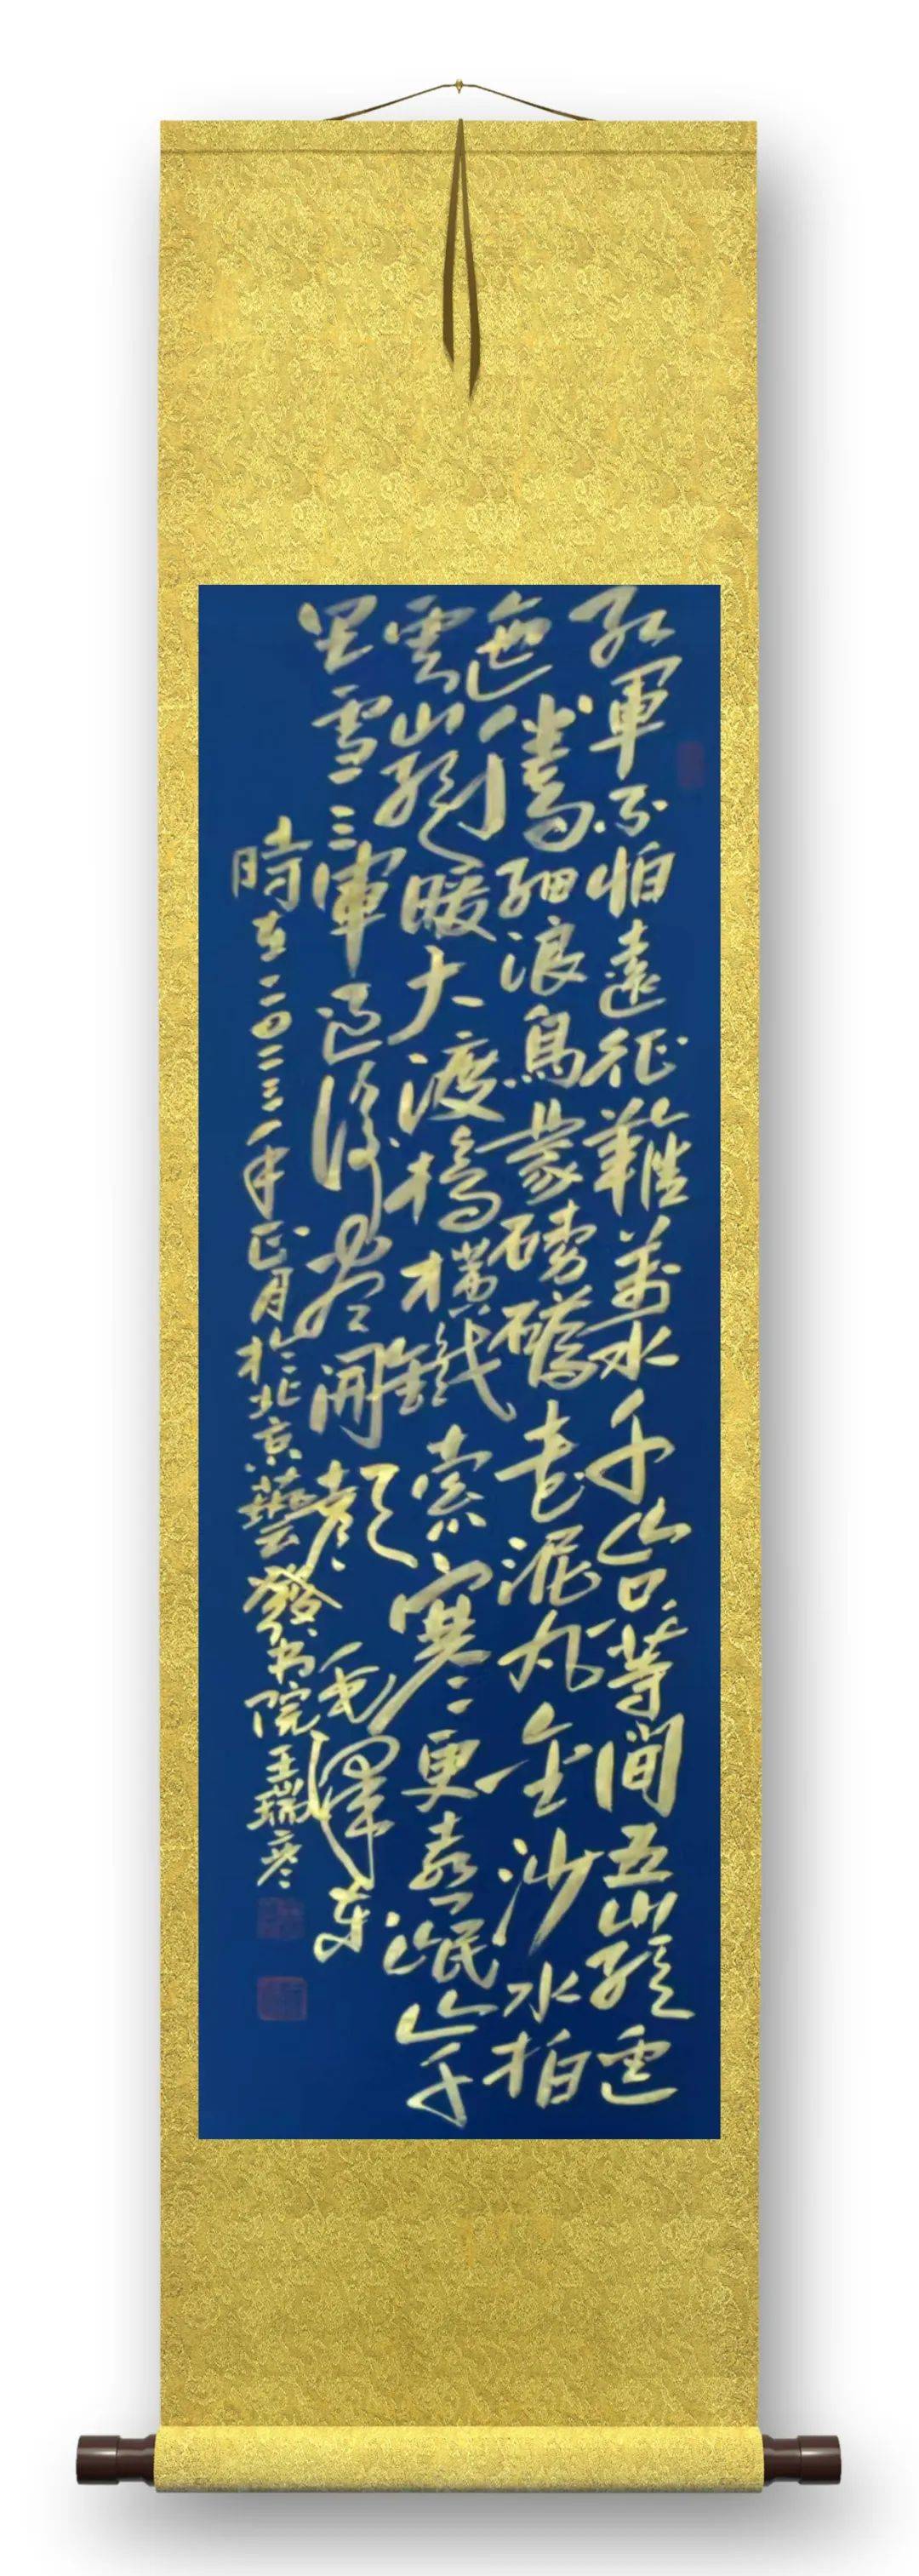 红軍不怕遠征難萬水千山只等間五嶺逶
迤騰細浪烏蒙磅礴走泥丸金沙水拍
雲崖暖大渡橋橫鐵索寒更喜岷山千
里雪三軍過後盡開顏 毛澤東
時在二〇二三年正月於北京藝發书院王瑞彦